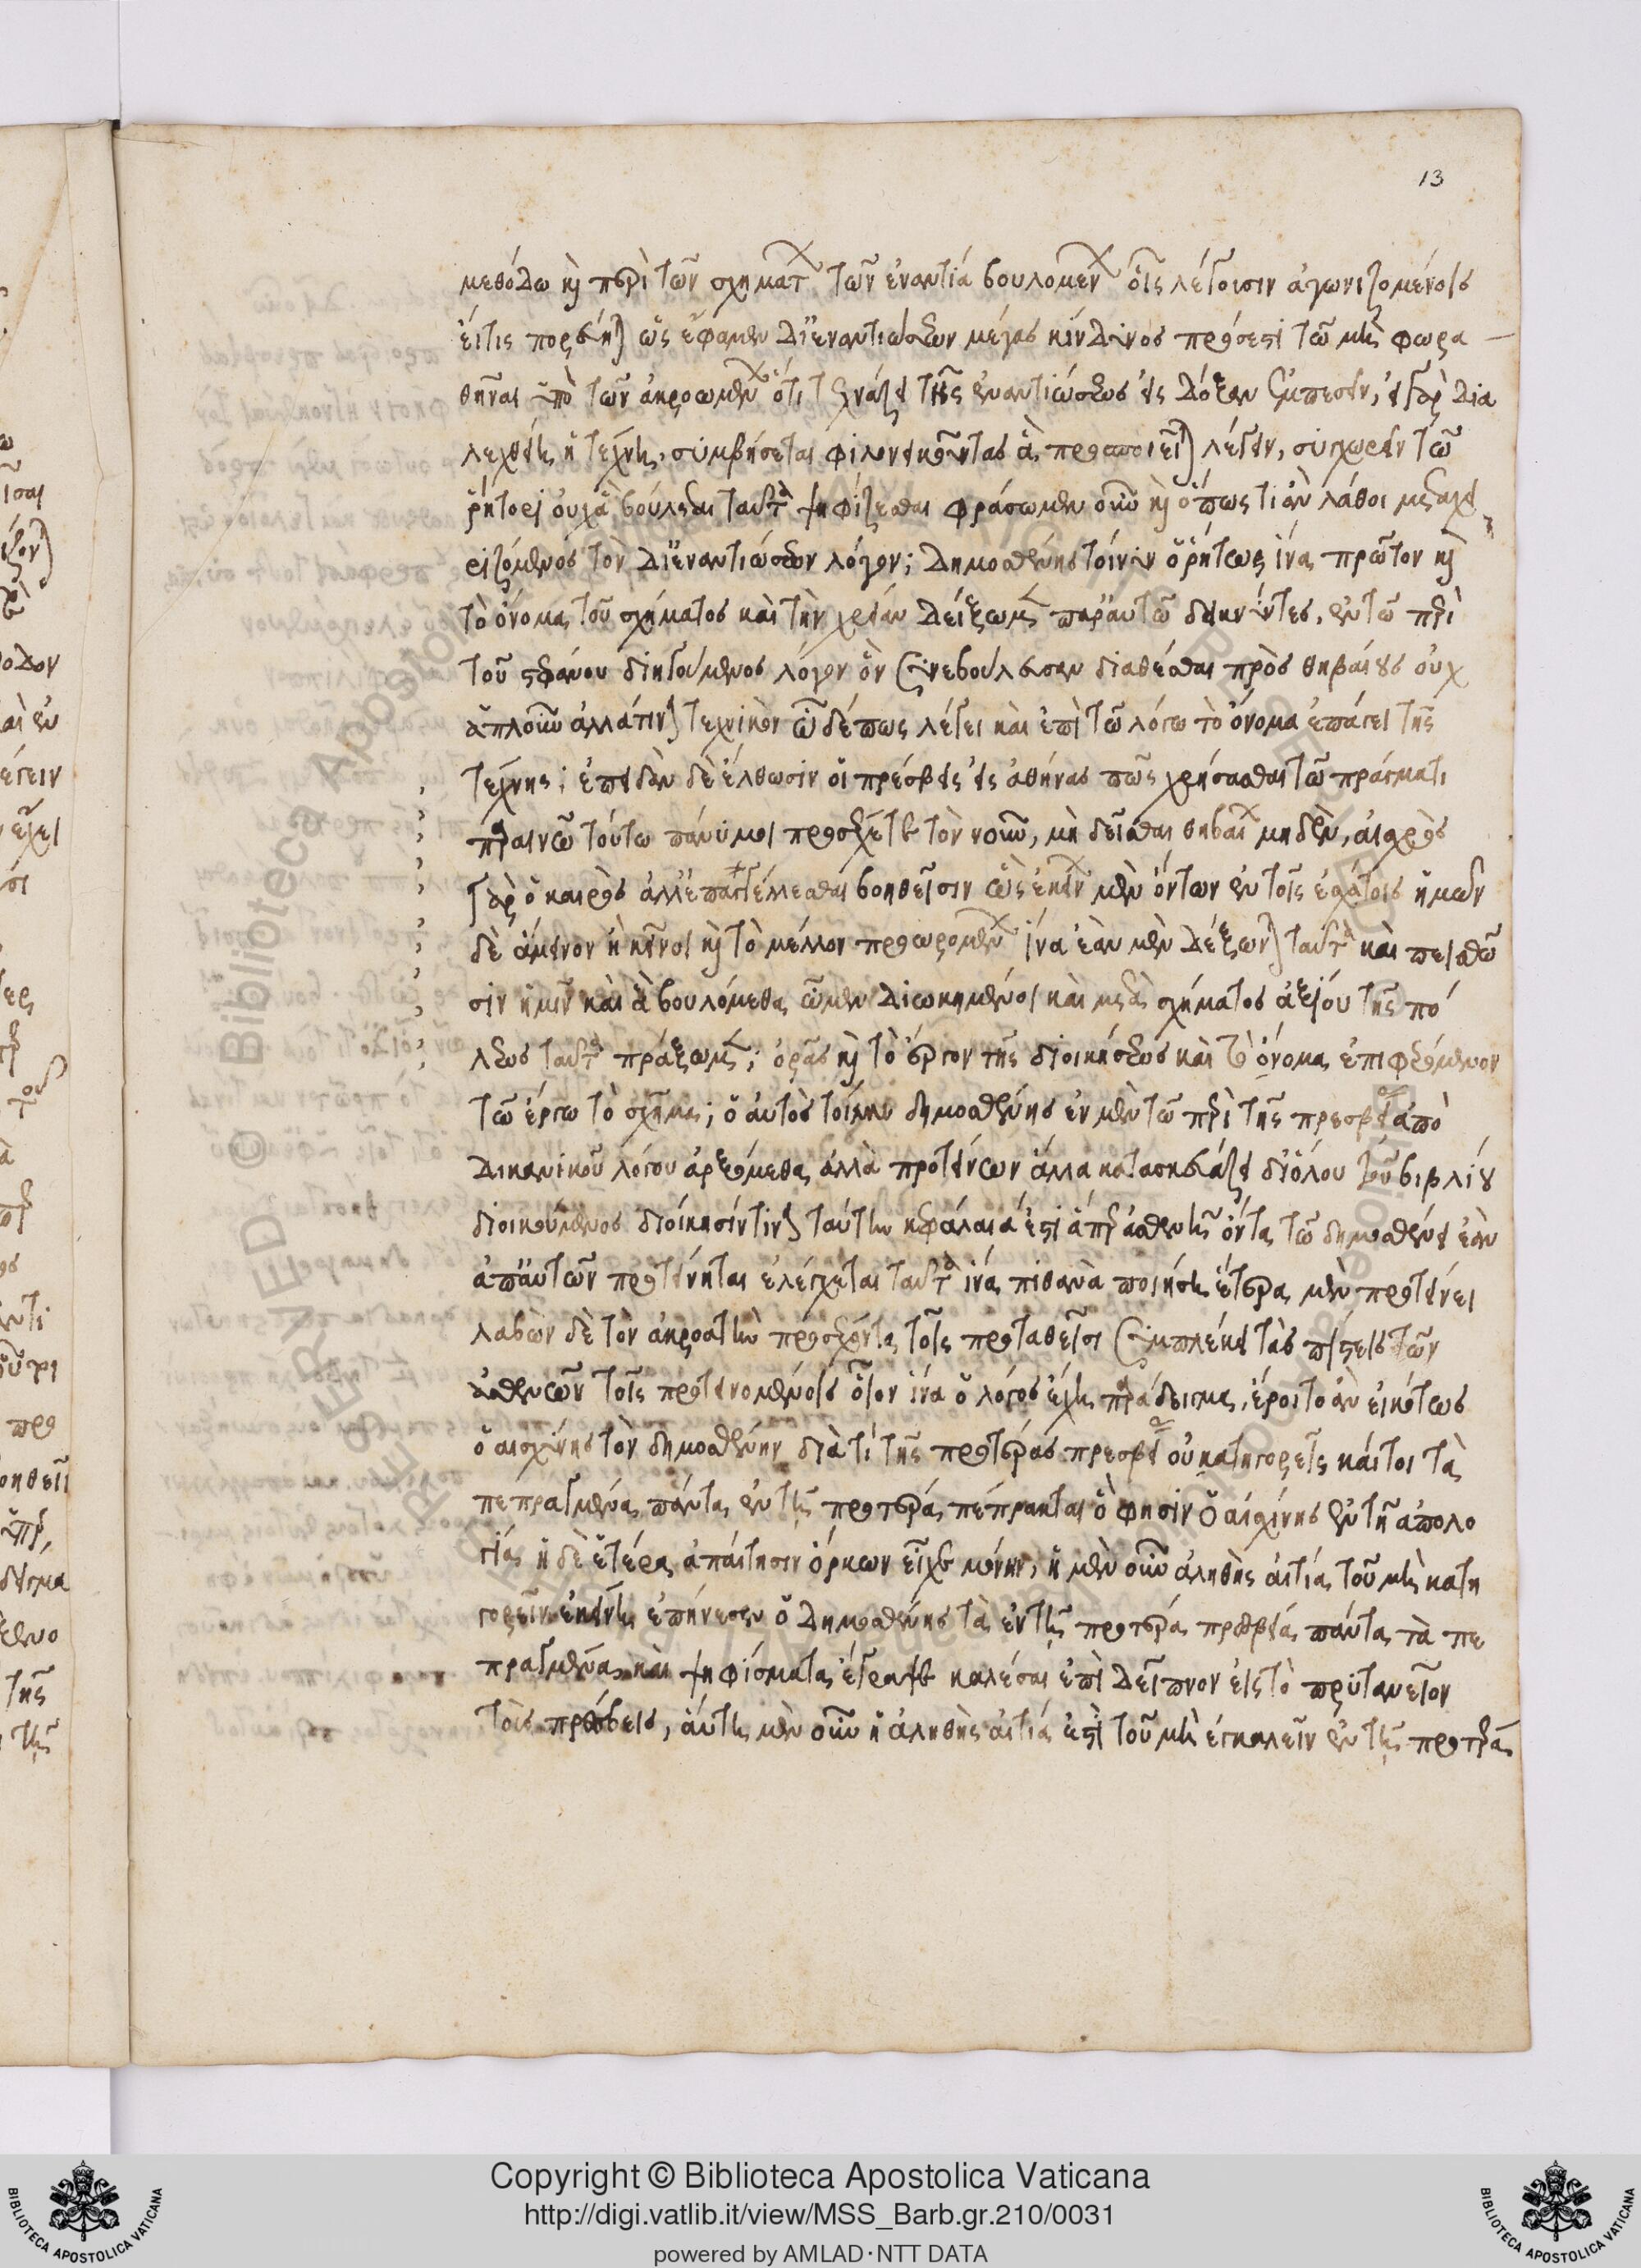 13
μεθόδω κὶ περὶ τῶν σχηματ τῶν ἐναντία βουλομέν οἷς λέγουσιν ἀγωνιζομένοις
ὡς ἔφαμεν μέγας κίνδυνος πρόσεστι τῶ μὴ φωρα
θῆναι ὑπὸ τῶν ἀκροωμέν ὅτι τῆς ἐναντιώσεως εἰς δόξαν ἐμπεσεῖν, εἰ γὰρ δια
λεχθείη ἡ τέχνη, συμβήσεται φιλονεικοῦντας ἃ προσποιεῖτ λέγειν, συγχωρεῖν τῶ
ῥήτορι οὐχ ἃ βούλεται ταῦτα ψηφίζεσθαι φράσωμεν οὖν κὶ ὅπως τις ἂν λάθοι μεταχει
ριζόμενος τὸν δι' ἐναντιώσεων λόγον; Δημοσθένης τοίνυν ὁ ῥήτωρ ἵνα πρῶτον κὶ
τὸ ὄνομα τοῦ σχήματος καὶ τὴν χρείαν δείξωμ παρ' αὐτῶ δεικνύντες, ἐν τῶ περὶ
τοῦ στεφάνου διηγούμενος λόγον ὃν συνεβούλευσεν διαθέσθαι πρὸς θηβαίους οὐχ
ἁπλοῦν ἀλλά τινα τεχνικὸν ὧδέ πως λέγει καὶ ἐπὶ τῶ λόγω τὸ ὄνομα ἐπάγει τῆς
τέχνης; ἐπειδὰν δὲ ἔλθωσιν οἱ πρέσβεις εἰς ἀθήνας πῶς χρήσασθαι τῶ πράγματι
παραινῶ τούτω πάνυ μοι προσέχετε τὸν νοῦν, μὴ δεῖσθαι θηβαί μηδὲν, αἰσχρὸς
γὰρ ὁ καιρὸς ἀλλ' ἐπαγγέλλεσθαι βοηθεῖσιν ὡς ἐκείν μὲν ὄντων ἐν τοῖς ἐσχάτοις ἡμῶν
δὲ ἄμεινον ἢ κεῖνοι κὶ τὸ μέλλον προορομέν ἵνα ἐὰν μὲν δέξωντ ταῦτα καὶ πεισθῶ
σιν ἡμῖν καὶ ἃ βουλόμεθα ὦμεν διωκημένοι καὶ μετὰ σχήματος ἀξίου τῆς πό
λεως ταῦτα πράξωμ; ὁρᾶς κὶ τὸ ἔργον τῆς διοικήσεως καὶ τὸ ὄνομα ἐπιφερόμενον
τῶ ἔργω τὸ σχῆμα; ὁ αὐτὸς τοίνυν δημοσθένης ἐν μὲν τῶ περὶ τῆς πρεσβεί ἀπὸ
δικανικοῦ λόγου ἀρξόμεθα ἀλλὰ προτείνων ἄλλα κατασκευάζει δι' ὅλου τοῦ βιβλίου
διοικούμενος διοίκησίν τινα ταύτην κεφάλαιά ἐστι ἅπερ ἀσθενῆ ὄντα τῶ δημοσθένει ἐὰν
ἀπ' αὐτῶν προτείνηται ἐλέγχεται ταῦτα ἵνα πιθανὰ ποιήση ἕτερα μὲν προτείνει
λαβὼν δὲ τὸν ἀκροατὴν προσέχοντα τοῖς προταθεῖσι συμπλέκει τὰς πίστεις τῶν
ἀσθενῶν τοῖς προτεινομένοις οἷον ἵνα ὁ λόγος ἔχη παράδειγμα, ἔροιτο ἂν εἰκότως
ὁ αἰσχίνης τὸν δημοσθένην διὰ τί τῆς προτέρας πρεσβεί οὐ κατηγορεῖς καίτοι τὰ
πεπραγμένα πάντα ἐν τῆ προτέρα πέπρακται ὃ φησὶν ὁ αἰσχίνης ἐν τῆ ἀπολο
γία ἡ δὲ ἑτέρα ἀπαίτησιν ὅρκων εἶχε μόνην, ἡ μὲν οὖν ἀληθὴς αἰτία τοῦ μὴ κατη
γορεῖν ἐκείνη ἐπήνεσεν ὁ Δημοσθένης τὰ ἐν τῆ προτέρα πρεσβεία πάντα τὰ πε
πραγμένα καὶ ψηφίσματα ἔγραψε καλέσαι ἐπὶ δεῖπνον εἰς τὸ πρυτανεῖον
τοὺς πρέσβεις, αὕτη μὲν οὖν ἡ ἀληθὴς αἰτία ἐστὶ τοῦ μὴ ἐγκαλεῖν ἐν τῆ προτέρα
Copyright © Biblioteca Apostolica Vaticana
http://digi.vatlib.it/view/MSS_Barb.gr.210/0031
powered by AMLAD·NTT DATA
BIBLIOTECA APOSTOLICA VATICANA
BIBLIOTECA APOSTOLICA VATICANA